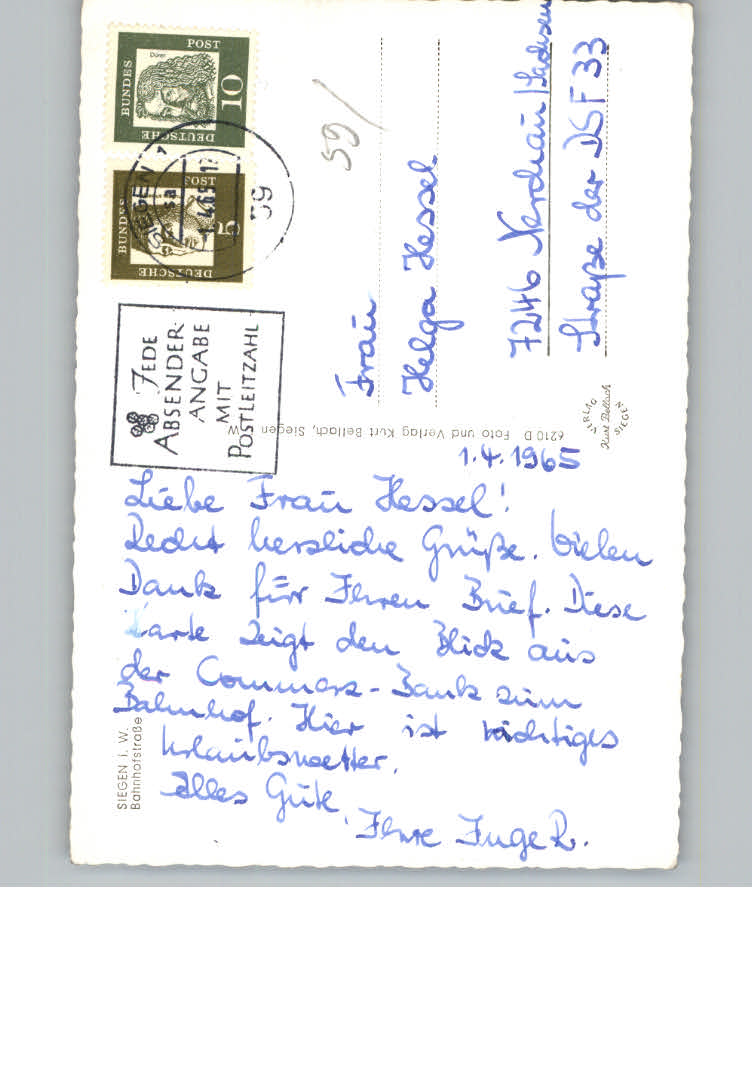 1.4.1965
Liebe Frau Hessel!
Recht herzliche Grüße. Vielen
Dank für Ihren Brief. Diese
Karte zeigt den Blick aus
der Commerz-Bank zum
Bahnhof. Hier ist richtiges
Urlaubswetter.
Alles Gute,
Ihre Inge R.
Frau
Helga Hessel
7246 Nerchau/Sachsen
Straße der DSF 33
59/
DEUTSCHE
BUNDES
POST
Dürer
10
DEUTSCHE
BUNDES
POST
5
SIEGEN 1
59
JEDE
ABSENDER-
ANGABE
MIT
POSTLEITZAHL
6210 D Foto und Verlag Kurt Bellach, Siegen W.
VERLAG
Kurt Bellach
SIEGEN
SIEGEN i. W.
Bahnhofstraße